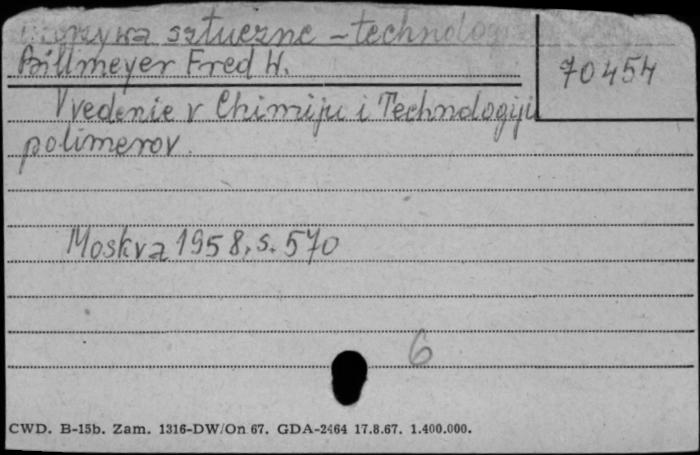 sztuczne - technologi
Billmeyer Fred W.
70454
Vvedenie v Chimiju i Technologiju
polimerov.
Moskva 1958, s. 570
6
CWD. B-15b. Zam. 1316-DW/On 67. GDA-2464 17.8.67. 1.400.000.